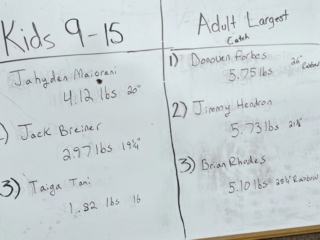 Kids 9-15
Jahyden Maiorani
4.12 lbs 20"
2) Jack Breiner
2.97 lbs 19¼"
3) Taiga Tani
1.82 lbs 16
Adult Largest
Catch
1) Donoven Forbes
5.75 lbs 26" Rainbow
2) Jimmy Hendron
5.73 lbs
3) Brian Rhodes
5.10 lbs Rainbow